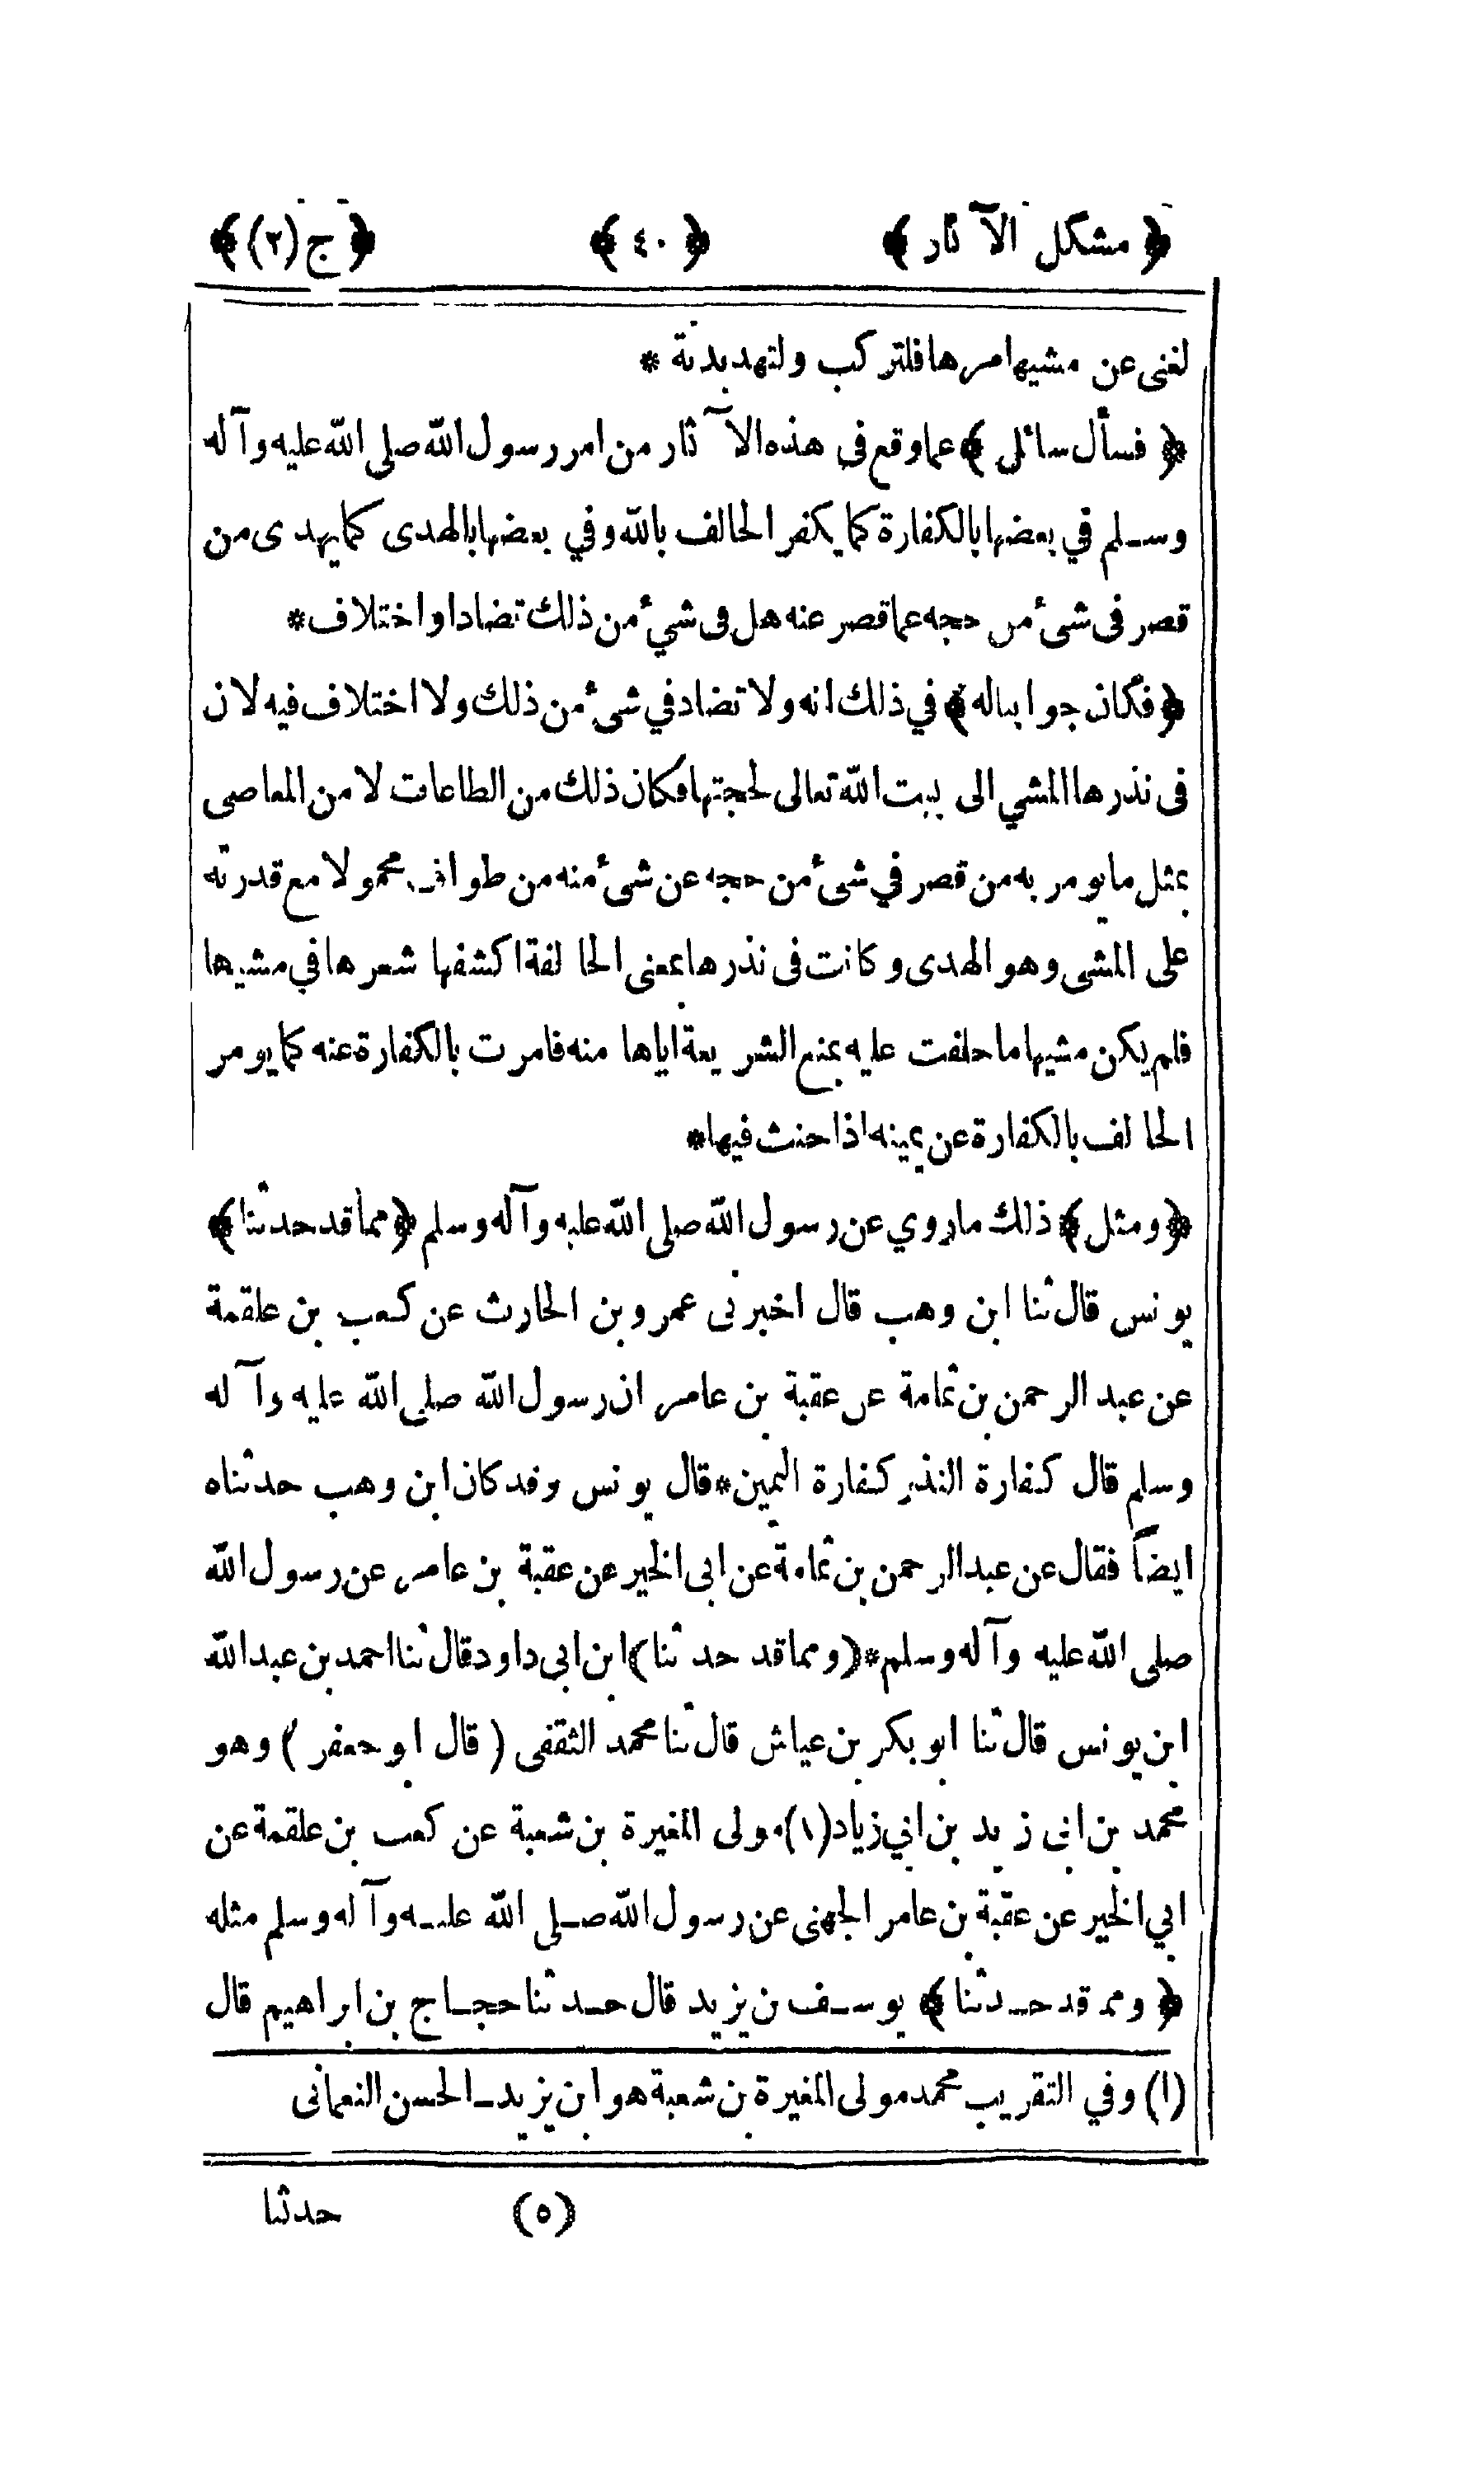 ﴿ مشكل الآثار ﴾ ﴿ ٤٠ ﴾ ﴿ ج (٢) ﴾
لغنى عن مشيها مرها فلتركب ولتهد بدنة *
﴿ فسأل سائل ﴾ عما وقع فى هذه الآثار من امر رسول الله صلى الله عليه وآله
وسلم في بعضها بالكفارة كما يكفر الحالف بالله وفي بعضها بالهدى كما يهدى من
قصر فى شىء من حجه عما قصر عنه هل فى شيء من ذلك تضادا واختلاف *
﴿ فكان جوابنا له ﴾ في ذلك انه ولا تضاد في شىء من ذلك ولا اختلاف فيه لان
فى نذرها المشي الى بيت الله تعالى لحجتها فكان ذلك من الطاعات لا من المعاصى
بمثل ما يومر به من قصر في شىء من حجه عن شىء منه من طوافه محمولا مع قدرته
على المشى وهو الهدى وكانت فى نذرها بمعنى الحالفة اكشفها شعرها في مشيها
فلم يكن مشيها ما حلفت عليه بمنع الشريعة اياها منه فامرت بالكفارة عنه كما يومر
الحالف بالكفارة عن يمينه اذا حنث فيها *
﴿ ومثل ﴾ ذلك ما روي عن رسول الله صلى الله عليه وآله وسلم ﴿ مما قد حدثنا ﴾
يونس قال ثنا ابن وهب قال اخبرنى عمرو بن الحارث عن كعب بن علقمة
عن عبد الرحمن بن ثمامة عن عقبة بن عامر ان رسول الله صلى الله عليه وآله
وسلم قال كفارة النذر كفارة اليمين * قال يونس وقد كان ابن وهب حدثناه
ايضاً فقال عن عبد الرحمن بن ثمامة عن ابى الخير عن عقبة بن عامر عن رسول الله
صلى الله عليه وآله وسلم * (ومما قد حدثنا) ابن ابى داود قال ثنا احمد بن عبد الله
ابن يونس قال ثنا ابو بكر بن عياش قال ثنا محمد الثقفى ( قال ابو جعفر ) وهو
محمد بن ابى زيد بن ابي زياد (١) مولى المغيرة بن شعبة عن كعب بن علقمة عن
ابي الخير عن عقبة بن عامر الجهنى عن رسول الله صلى الله عليه وآله وسلم مثله
﴿ ومما قد حدثنا ﴾ يوسف بن يزيد قال حدثنا حجاج بن ابراهيم قال
(١) وفي التقريب محمد مولى المغيرة بن شعبة هو ابن يزيد ـ الحسن النعمانى
(٥) حدثنا